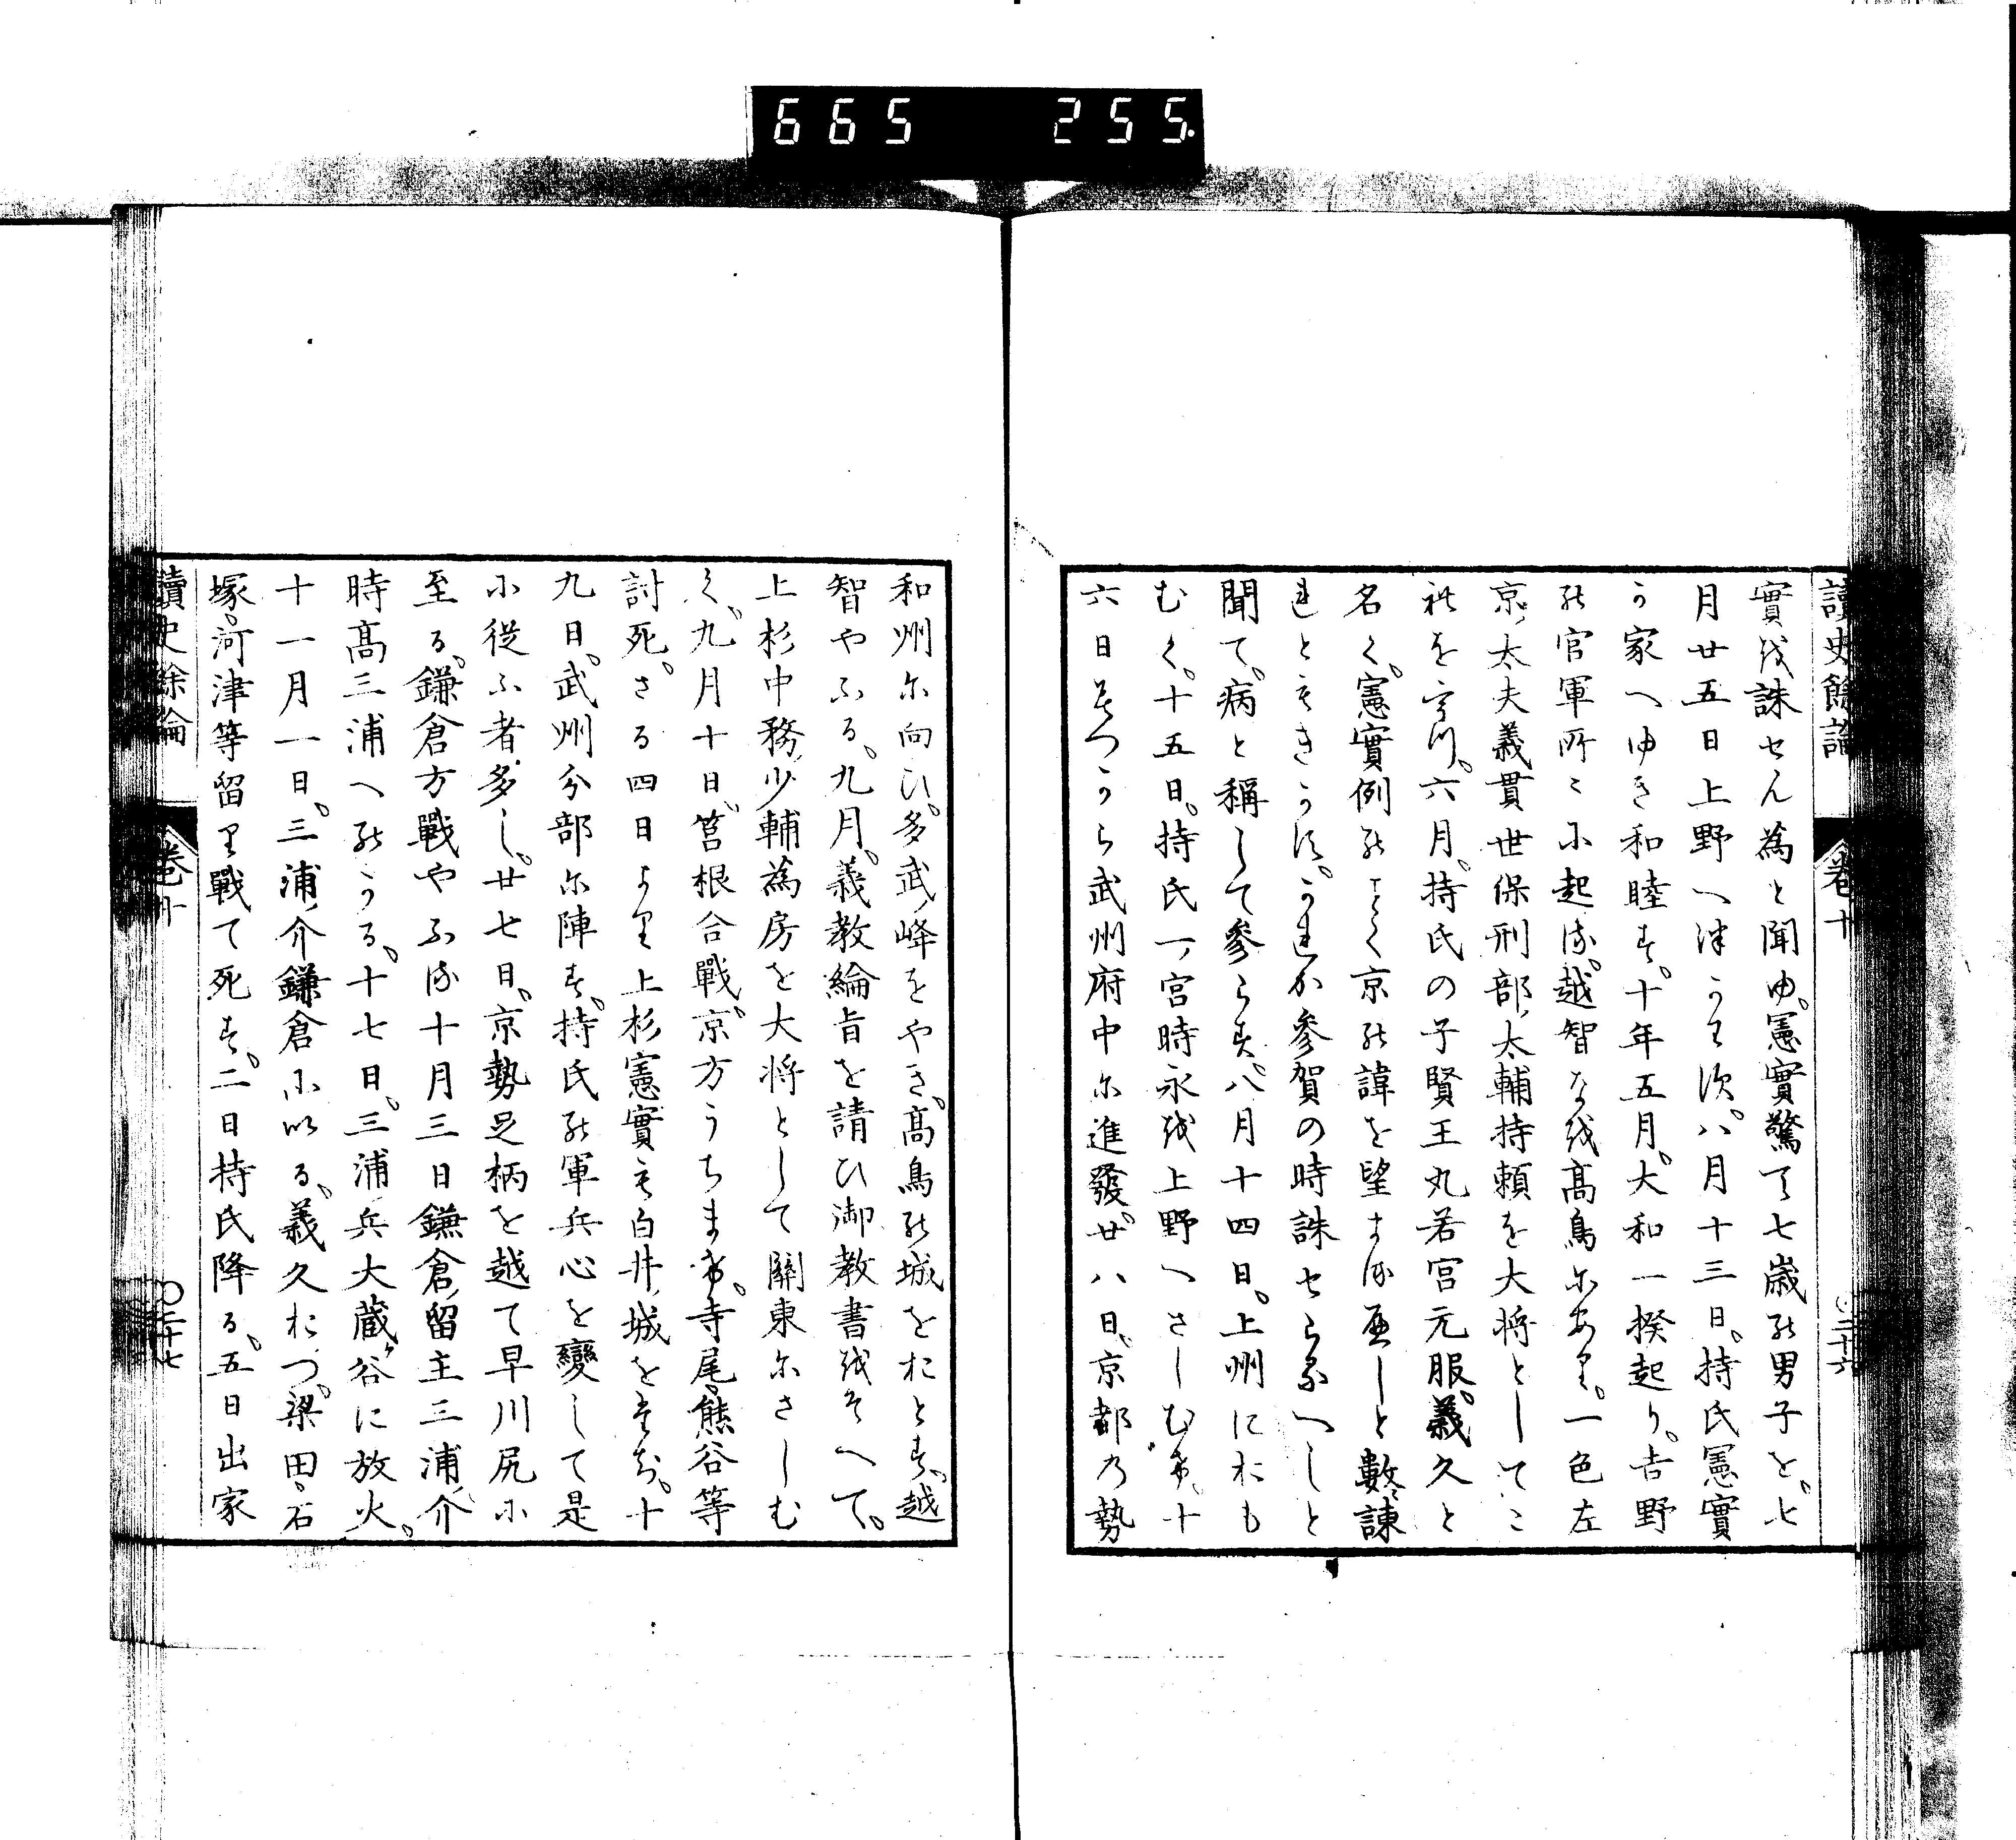 665 255.
讀史餘論 卷十 〇二十六
實を誅せん為と聞ゆ。憲實驚て七歳の男子を。七
月廿五日上野へ津かはす。八月十三日。持氏憲實
か家へゆき和睦す。十年五月。大和一揆起り。吉野
の官軍所々に起る。越智なを髙鳥にあり。一色左
京太夫義貫世保刑部太輔持頼を大将としてこ
れをうつ。六月。持氏の子賢王丸若宮元服。義久と
名く。憲實例のことく京の諱を望まる屁しと數諫
れとも聞て。きかす。これか参賀の時誅せらるへしと
聞て。病と稱して参らす。八月十四日。上州におも
むく。十五日。持氏一宮時永を上野へさしむけ。十
六日みつから武州府中に進發。廿八日。京都乃勢
和州に向ひ。多武峰をやき。髙鳥の城をおとす。越
智やふる。九月。義教綸旨を請ひ御教書をそへて。
上杉中務少輔為房を大将として關東にさしむ
く。九月十日。筥根合戰。京方うちまけ。寺尾熊谷等
討死。さる四日より上杉憲實も白井城をたち。十
九日。武州分部に陣す。持氏の軍兵心を變して是
に從ふ者多し。廿七日。京勢足柄を越て早川尻に
至る。鎌倉方戰やふる十月三日鎌倉留主三浦介
時髙三浦へのかる。十七日。三浦兵大蔵ヶ谷に放火。
十一月一日。三浦介鎌倉に以る。義久おつ。梁田石
塚河津等留り戰て死す。二日持氏降る。五日出家
讀史餘論 卷十 〇二十七